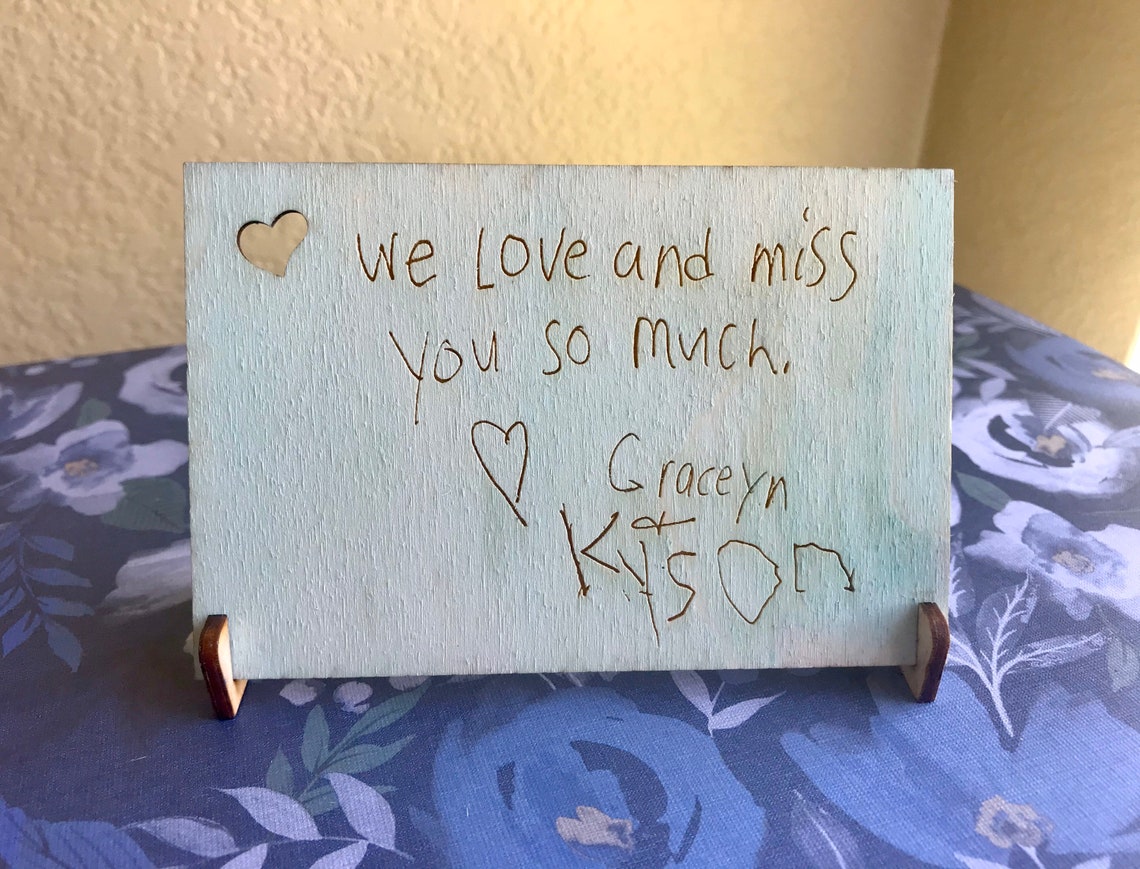 we Love and miss
you so much.
Graceyn
&
Kyson